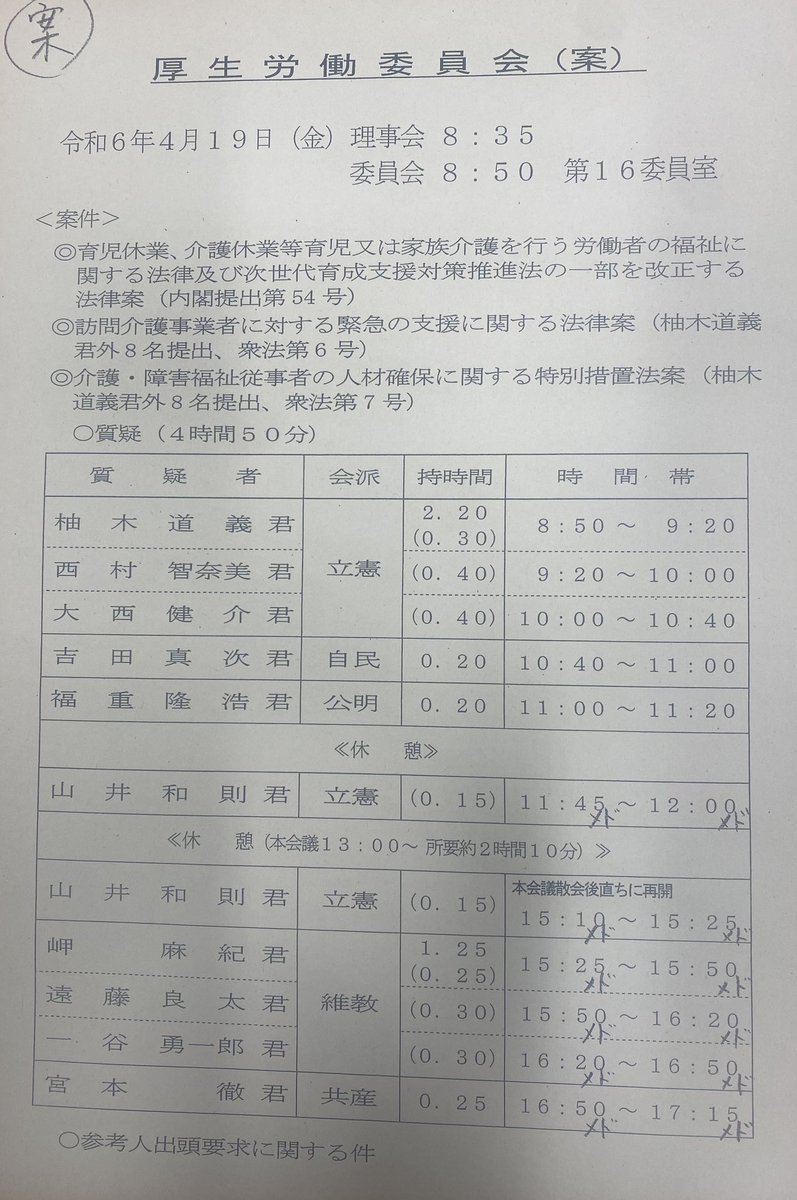 案
厚生労働委員会（案）
令和６年４月１９日（金）理事会 ８：３５
委員会 ８：５０ 第１６委員室
＜案件＞
◎育児休業、介護休業等育児又は家族介護を行う労働者の福祉に
関する法律及び次世代育成支援対策推進法の一部を改正する
法律案（内閣提出第54号）
◎訪問介護事業者に対する緊急の支援に関する法律案（柚木道義
君外８名提出、衆法第６号）
◎介護・障害福祉従事者の人材確保に関する特別措置法案（柚木
道義君外８名提出、衆法第７号）
○質疑（４時間５０分）
質疑者 会派 持時間 時間帯
柚木道義君 立憲 ２．２０ （０．３０） ８：５０～ ９：２０
西村智奈美君 （０．４０） ９：２０～１０：００
大西健介君 （０．４０） １０：００～１０：４０
吉田真次君 自民 ０．２０ １０：４０～１１：００
福重隆浩君 公明 ０．２０ １１：００～１１：２０
≪休 憩≫
山井和則君 立憲 （０．１５） １１：４５～１２：００
メド メド
≪休 憩（本会議１３：００～ 所要約２時間１０分）≫
本会議散会後直ちに再開
山井和則君 立憲 （０．１５） １５：１０～１５：２５
メド メド
岬 麻紀君 維教 １．２５ （０．２５） １５：２５～１５：５０
メド メド
遠藤良太君 （０．３０） １５：５０～１６：２０
メド メド
一谷勇一郎君 （０．３０） １６：２０～１６：５０
メド メド
宮本 徹君 共産 ０．２５ １６：５０～１７：１５
メド メド
○参考人出頭要求に関する件